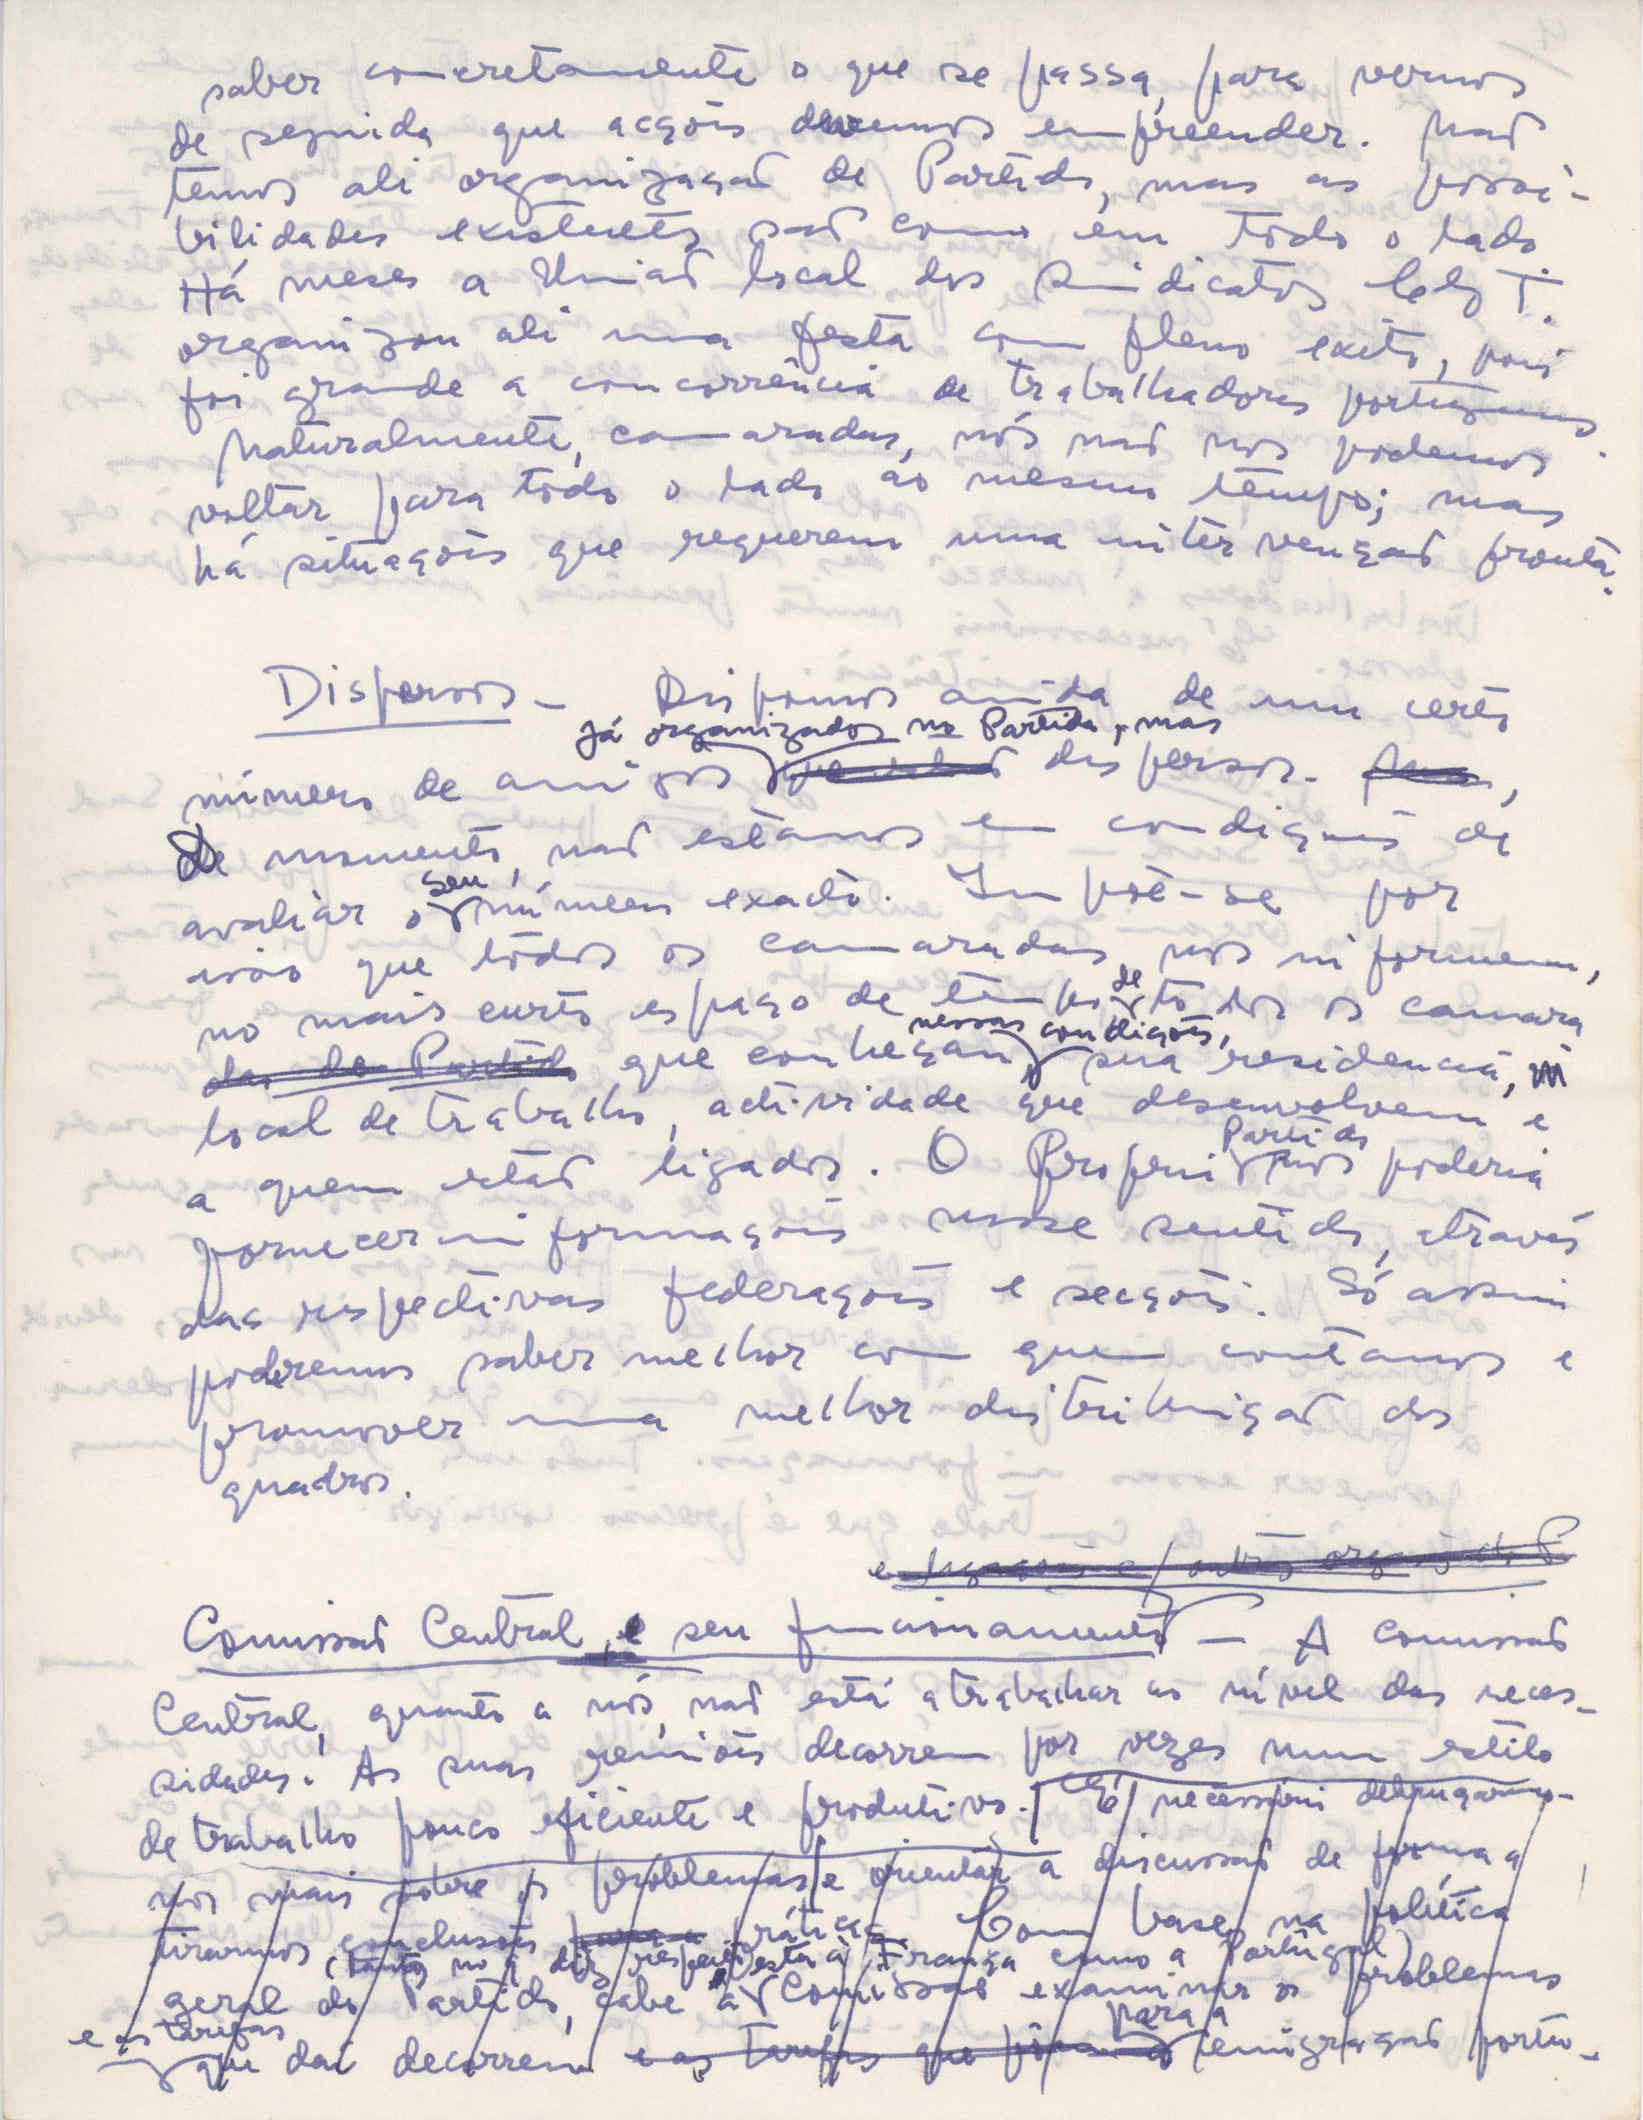 saber concretamente o que se passa, para vermos
de seguida que acções devemos empreender. Não
temos ali organização de Partido, mas as possi-
bilidades existentes são como em todo o lado
Há meses a União local dos Sindicatos C.G.T.
organizou ali uma festa com pleno exito, pois
foi grande a concorrência de trabalhadores portugueses.
Naturalmente, camaradas, nós não nos podemos
voltar para todo o lado ao mesmo tempo; mas
há situações que requerem uma intervenção pronta.
Dispersos - Dispomos ainda de um certo
já organizados no Partido, mas
número de amigos dispersos. ,
De momento, não estamos em condições de
seu
avaliar o número exacto. Impõe-se por
isso que todos os camaradas nos informem,
no mais curto espaço de tempo de todos os camara
nessas condições,
das do Partido que conheçam sua residencia,
local de trabalho, actividade que desenvolvem e
Partido
a quem estão ligados. O Proprio nos poderia
fornecer informações nesse sentido, através
das respectivas federações e secções. Só assim
poderemos saber melhor com quem contamos e
promover uma melhor distribuição dos
quadros.
e ligações c/ outros orgãos do P.
Comissão Central, e seu funcionamento - A comissão
Central, quanto a nós, não está a trabalhar ao nível das neces-
sidades. As suas reuniões decorrem por vezes num estilo
de trabalho pouco eficiente e produtivo. É necessário debruçarmo-
nos mais sobre os problemas e orientar a discussão de forma a
tirarmos conclusões para a prática. Com base na política
(tanto no q diz respeito a França como a Portugal)
geral do Partido, cabe a esta Comissão examinar os problemas
e as tarefas para a
que daí decorrem e as tarefas que emigração portu-